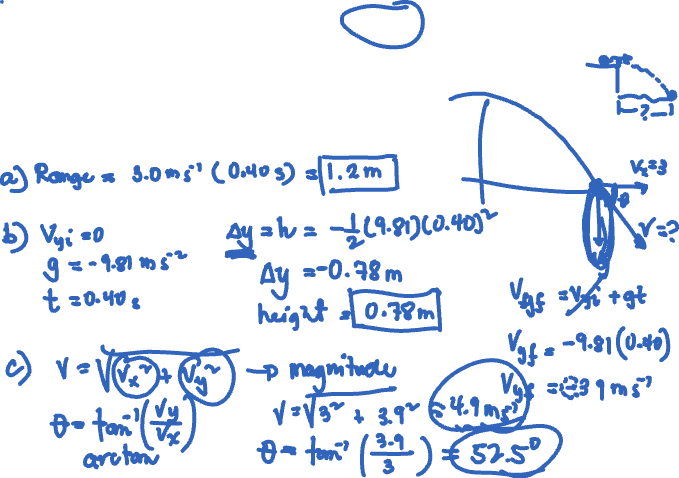 |-?-|
a) Range = 3.0 ms⁻¹ (0.40 s) = 1.2 m
Vₓ=3
θ
V=?
b) Vyi = 0
g = -9.81 ms⁻²
t = 0.40 s
Δy = h = -1/2 (9.81)(0.40)²
Δy = -0.78 m
height = 0.78 m
Vyf = Vyi + gt
Vyf = -9.81 (0.40)
Vyf = -3.9 ms⁻¹
c) V = √(Vx² + Vy²) → magnitude
θ = tan⁻¹ (Vy/Vx)
arctan
V = √3² + 3.9² = 4.9 ms⁻¹
θ = tan⁻¹ (3.9/3) = 52.5°